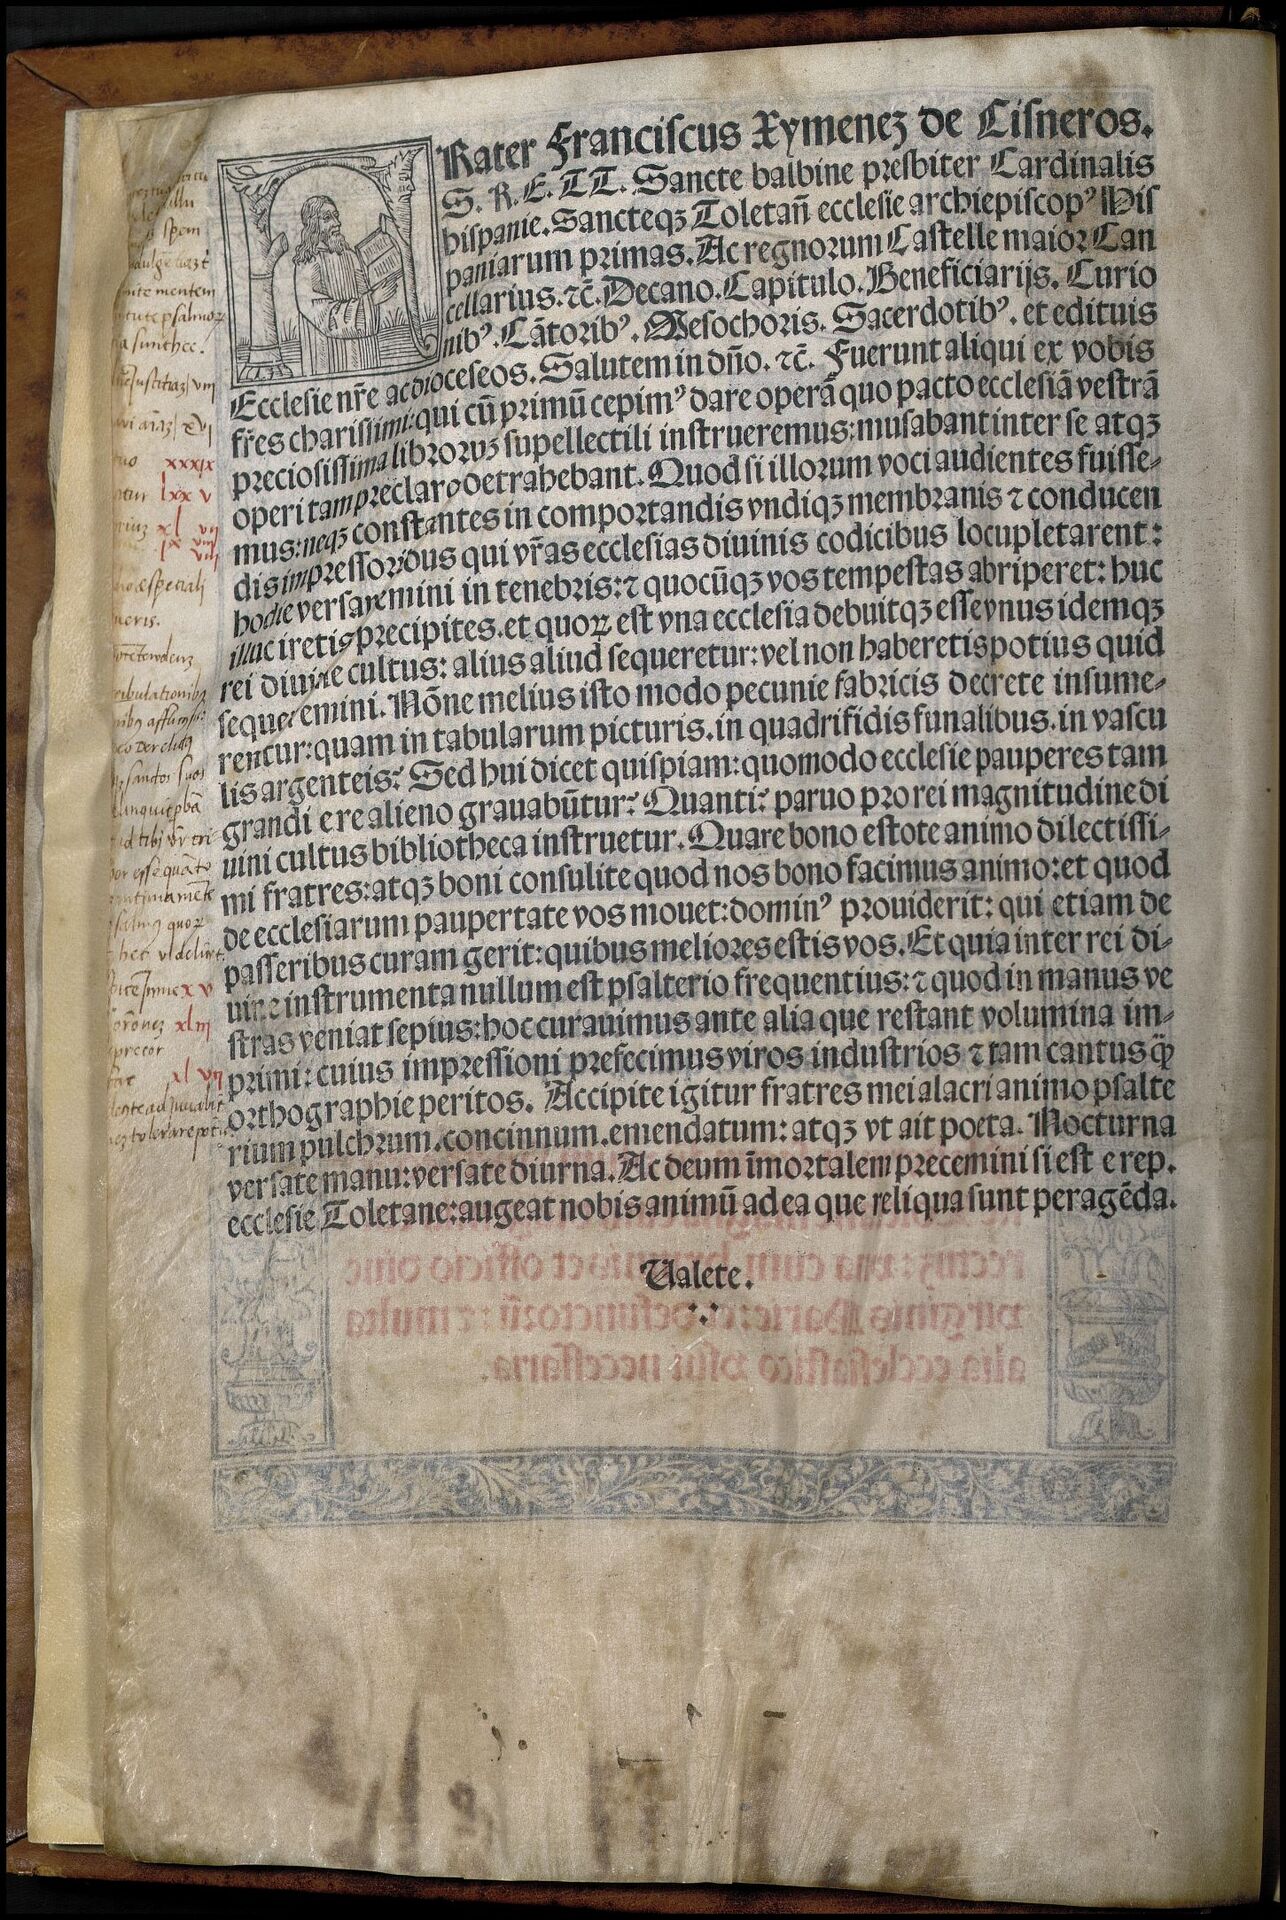 Frater Franciscus Xymenez de Cisneros.
S. R. E. TT. Sancte balbine presbiter Cardinalis
hispanie. Sancteqꝫ Toletan̄ ecclesie archiepiscopꝰ His
paniarum primas. Ac regnorum Castelle maior Can
cellarius. ⁊c̄. Decano. Capitulo. Beneficiarijs. Curio
nibꝰ. Cātoribꝰ. Mesochoris. Sacerdotibꝰ. et edituis
Ecclesie nr̄e ac dioceseos. Salutem in dn̄o. ⁊c̄. Fuerunt aliqui ex vobis
fr̄es charissimi: qui cū primū cepimꝰ dare operā quo pacto ecclesiā vestrā
preciosissima libroruꝫ supellectili instrueremus: musabant inter se atqꝫ
operi tam preclaro detrahebant. Quod si illorum voci audientes fuisse-
mus: neqꝫ constantes in comportandis vndiqꝫ membranis ⁊ conducen
dis impressoribus qui vr̄as ecclesias diuinis codicibus locupletarent:
hodie versaremini in tenebris: ⁊ quocūqꝫ vos tempestas abriperet: huc
illuc iretis precipites. et quoꝝ est vna ecclesia debuitqꝫ esse vnus idemqꝫ
rei diuine cultus: alius aliud sequeretur: vel non haberetis potius quid
sequeremini. Nōne melius isto modo pecunie fabricis decrete insume-
rentur: quam in tabularum picturis. in quadrifidis funalibus. in vascu
lis argenteis? Sed hui dicet quispiam: quomodo ecclesie pauperes tam
grandi ere alieno grauabūtur? Quanti? paruo pro rei magnitudine di
uini cultus bibliotheca instruetur. Quare bono estote animo dilectissi-
mi fratres: atqꝫ boni consulite quod nos bono facimus animo: et quod
de ecclesiarum paupertate vos mouet: dominꝰ prouiderit: qui etiam de
passeribus curam gerit: quibus meliores estis vos. Et quia inter rei di-
uine instrumenta nullum est psalterio frequentius: ⁊ quod in manus ve
stras veniat sepius: hoc curauimus ante alia que restant volumina im-
primi: cuius impressioni prefecimus viros industrios ⁊ tam cantus qꝫ̄
orthographie peritos. Accipite igitur fratres mei alacri animo psalte
rium pulchrum. concinnum. emendatum: atqꝫ vt ait poeta. Nocturna
versate manu: versate diurna. Ac deum īmortalem precemini si est e rep.
ecclesie Toletane: augeat nobis animū ad ea que reliqua sunt peragēda.
Ualete.
spem
mentem
xxxix
lxx v
xl vij
xl vij